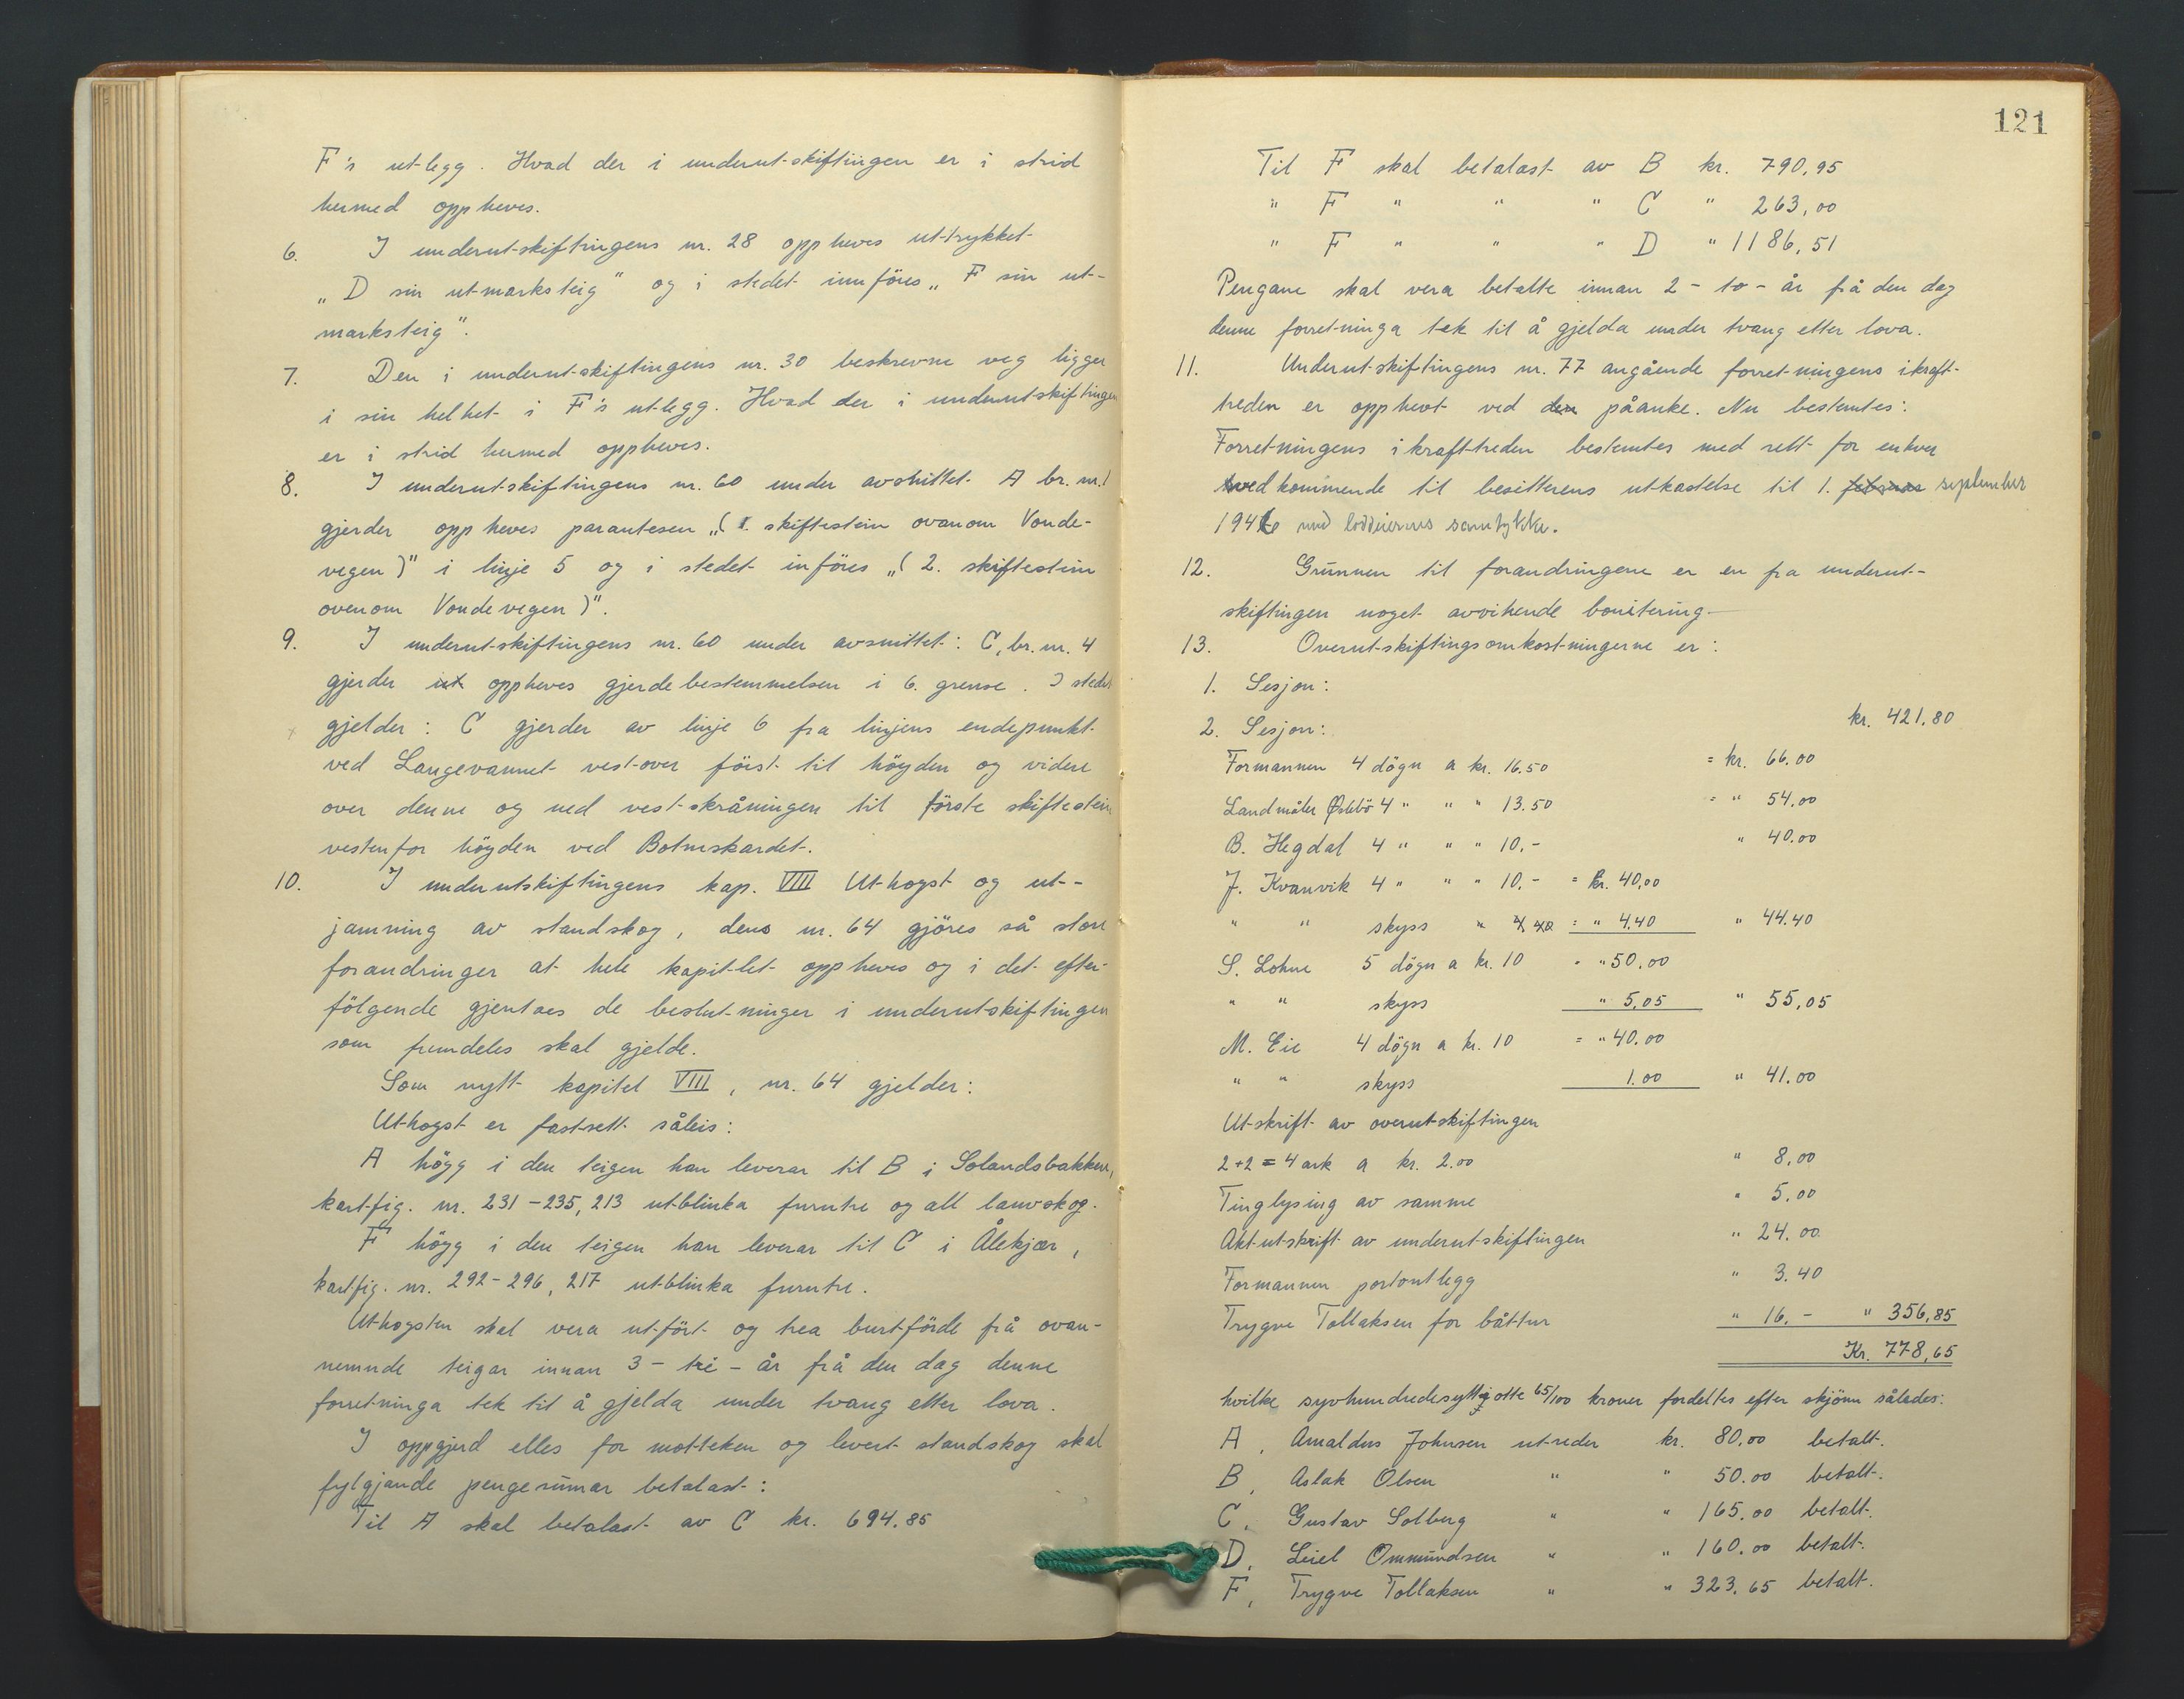 F's utlegg. Hvad der i underutskiftingen er i strid
hermed oppheves.
6. I underutskiftingens nr. 28 oppheves uttrykket
„D sin utmarksteig" og i stedet innföres „F sin ut-
marksteig".
7. Den i underutskiftingens nr. 30 beskrevne veg ligger
i sin helhet i F's utlegg. Hvad der i underutskiftingen
er i strid hermed oppheves.
8. I underutskiftingens nr. 60 under avsnittet A br. nr. 1
gjerder oppheves parantesen „(1. skiftestein ovanom Vonde-
vegen)" i linje 5 og i stedet införes „(2. skiftestein
ovenom Vondevegen)".
9. I underutskiftingens nr. 60 under avsnittet: C, br. nr. 4
gjerder ut oppheves gjerdebestemmelsen i 6. grense. I stedet
gjelder: C gjerder av linje 6 fra linjens endepunkt
ved Langevannet vestover först til höyden og videre
over denne og ned vestskråningen til förste skiftestein
vestenfor höyden ved Botnskardet.
10. I underutskiftingens kap. VIII Uthogst og ut-
jamning av standskog, dens nr. 64 gjöres så store
forandringer at hele kapitlet oppheves og i det efter-
fölgende gjentaes de beslutninger i underutskiftingen
som fremdeles skal gjelde.
Som nytt kapitel VIII, nr. 64 gjelder:
Uthogst er fastsett såleis:
A högg i den teigen han leverar til B i Solandsbakken,
kartfig. nr. 231-235, 213 utblinka furutre og all lauvskog.
F högg i den teigen han leverar til C i Ålekjær,
kartfig. nr. 292-296, 217 utblinka furutre.
Uthogsten skal vera utfört og trea burtförde frå ovan-
nemnde teigar innan 3 - tri - år frå den dag denne
forretninga tek til å gjelda under tvang etter lova.
I oppgjerd elles for motteken og levert standskog skal
fylgjande pengesumar betalast:
Til A skal betalast av C kr. 694.85
121
Til F skal betalast av B kr. 790,95
" F " " " C " 263,00
" F " " " D " 1186,51
Pengane skal vera betalte innan 2 - to - år frå den dag
denne forretninga tek til å gjelda under tvang etter lova.
11. Underutskiftingens nr. 77 angående forretningens ikraft-
treden er opphevt ved den påanke. Nu bestemtes:
Forretningens ikrafttreden bestemtes med rett for enhver
vedkommende til besitterens utkastelse til 1. februar september
1946 med loddeiernes samtykke.
12. Grunnen til forandringene er en fra underut-
skiftingen noget avvikende bonitering.
13. Overutskiftingsomkostningerne er:
1. Sesjon: kr. 421.80
2. Sesjon:
Formannen 4 dögn a kr. 16.50 = kr. 66.00
Landmåler 4 " " " 13.50 = " 54.00
B. Hegdal 4 " " " 10.- " 40.00
J. Kvanvik 4 " " " 10.- = kr. 40,00
" " skyss " 4,40 = " 4.40 " 44.40
S. Lohne 5 dögn a kr. 10 " " 50.00
" " skyss " 5,05 " 55,05
M. Eie 4 dögn a kr. 10 = " 40.00
" " skyss 1.00 " 41.00
Utskrift av overutskiftingen
2+2 = 4 ark a kr. 2.00 " 8,00
Tinglysing av samme " 5.00
Aktutskrift av underutskiftingen " 24.00
Formannen portoutlegg " 3.40
Trygve Tollaksen for båttur " 16.- " 356,85
Kr. 778,65
hvilke syvhundredesyttiotte 65/100 kroner fordeltes efter skjönn således:
A, Arnaldus Johnsen utreder kr. 80,00 betalt.
B, Aslak Olsen " " 50.00 betalt.
C, Gustav Solberg " " 165.00 betalt.
D, Leiel Ommundsen " " 160.00 betalt.
F, Trygve Tollaksen " " 323.65 betalt.